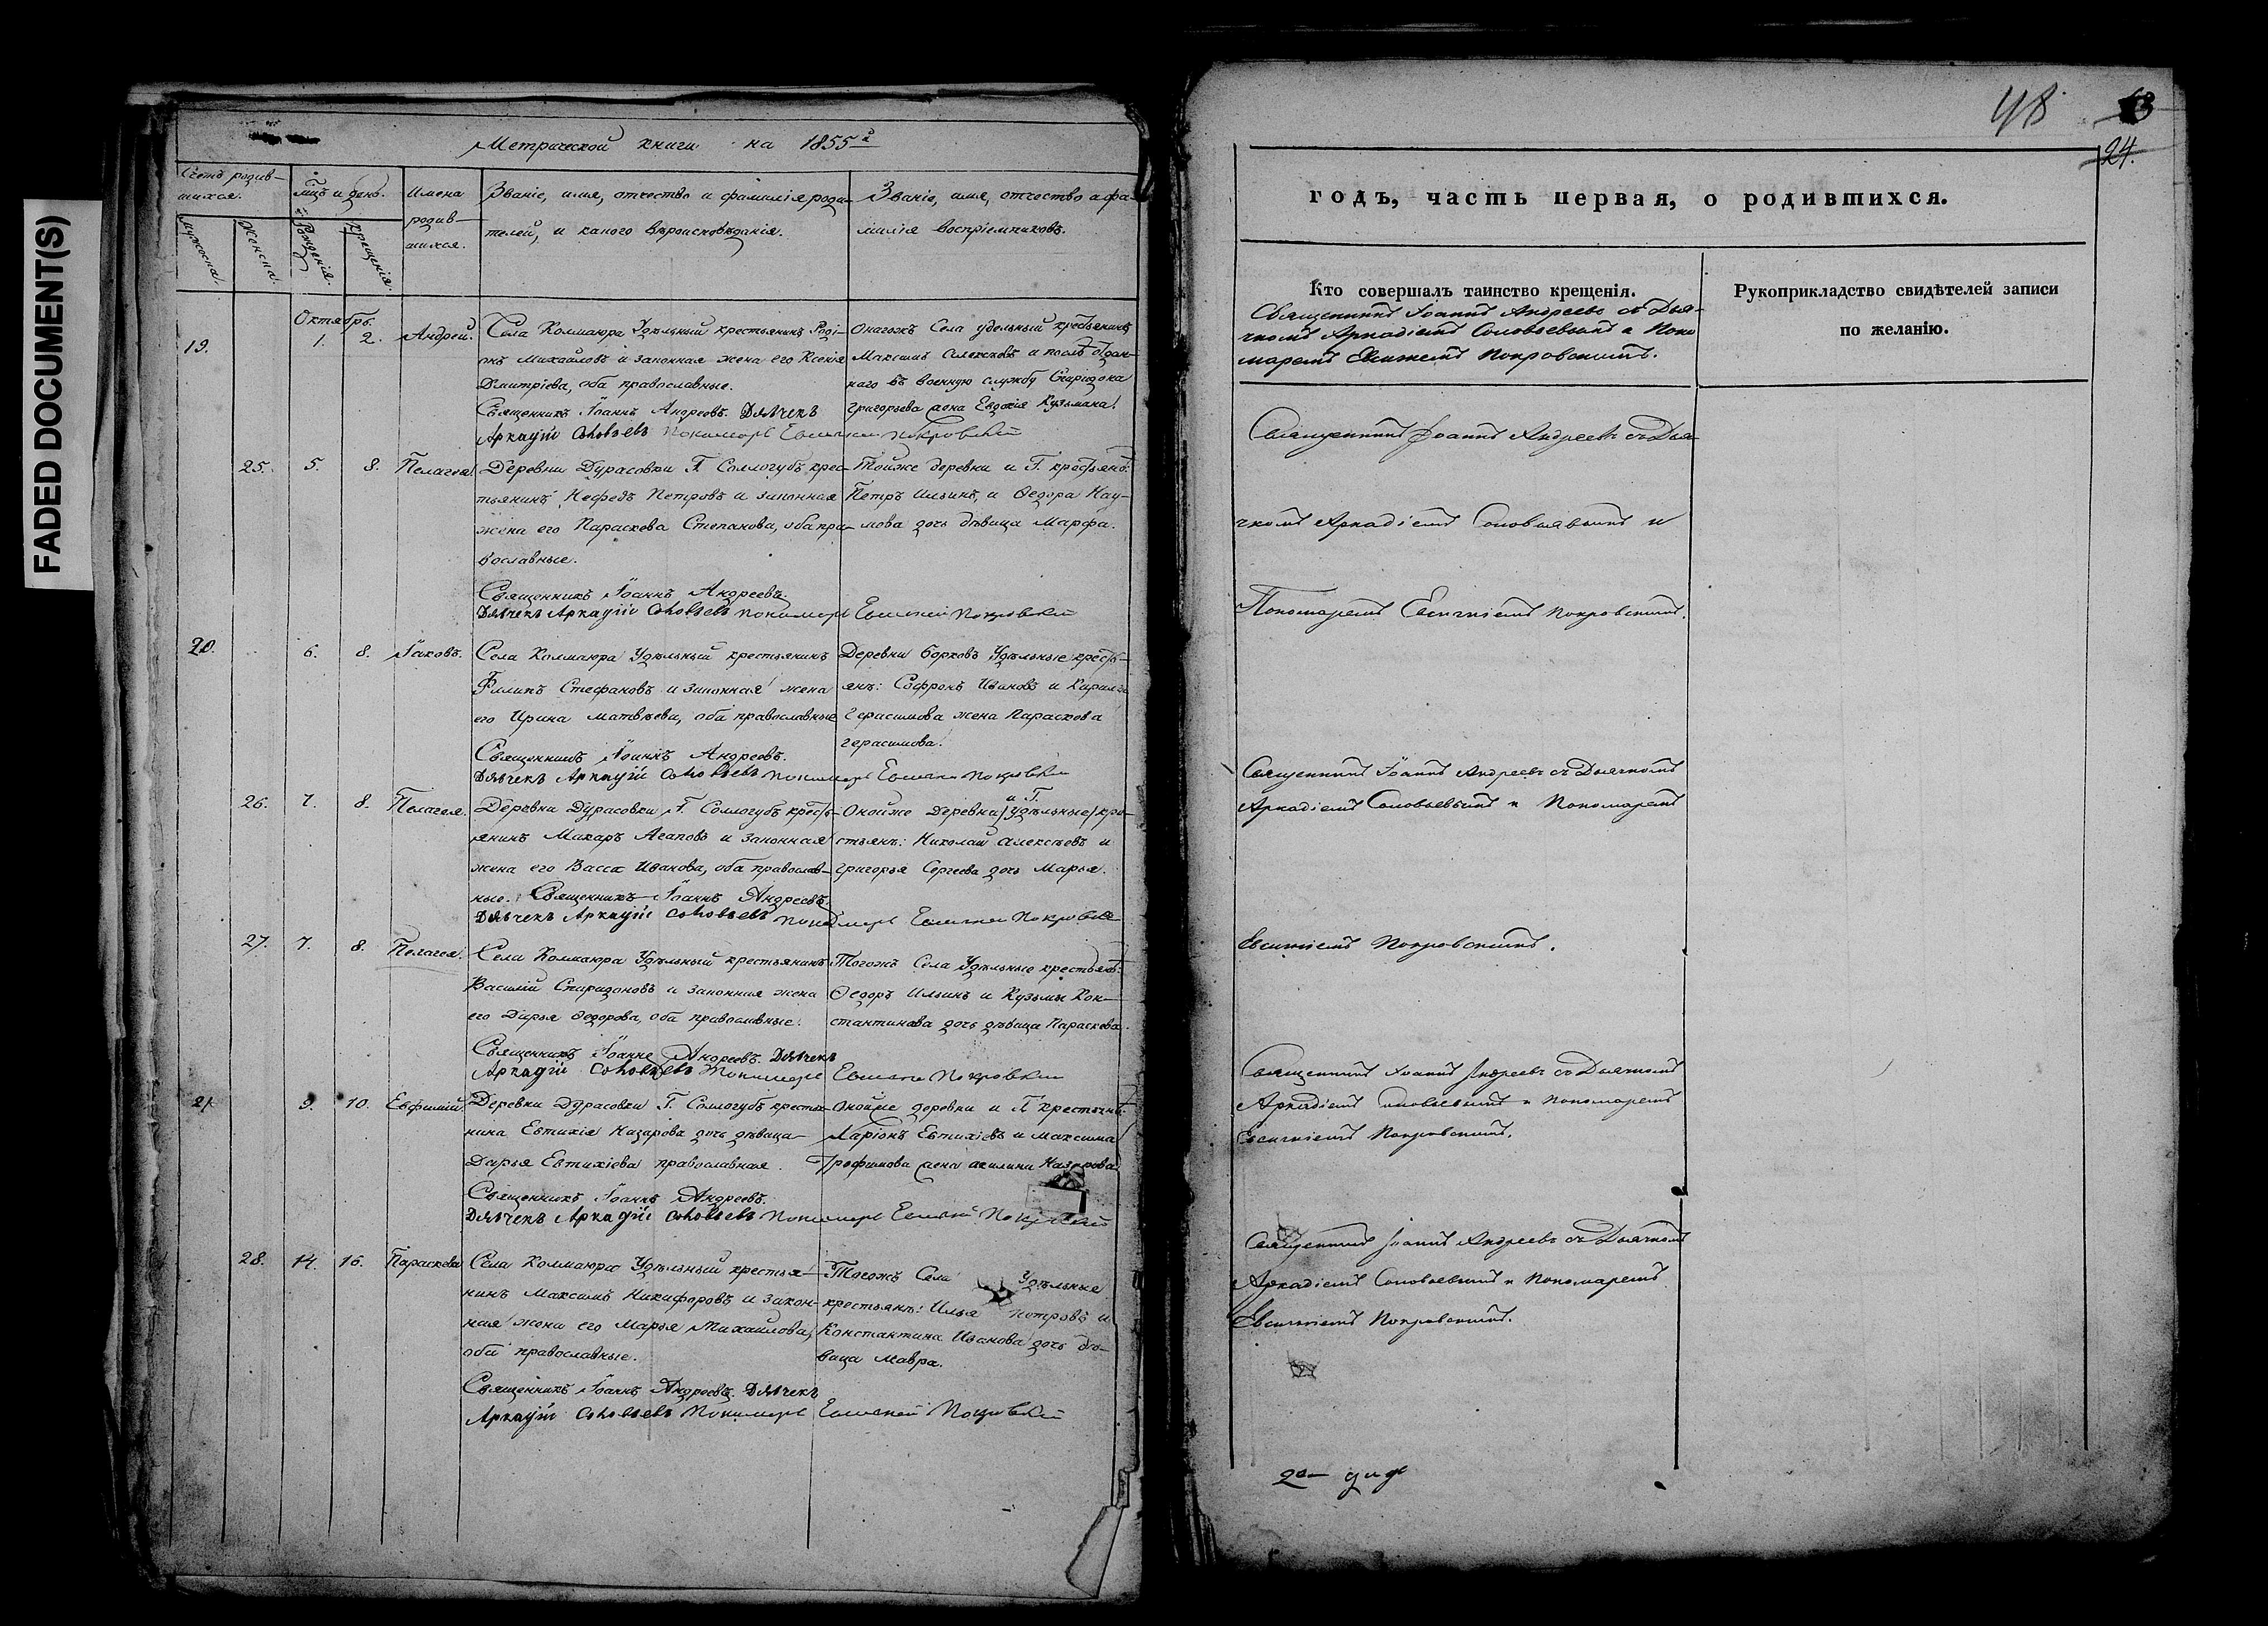 FADED DOCUMENT(S)
Метрической книги на 1855й
Счетъ родив-
шихся.
Мужеска.
Женска.
Мцъ и день.
Рожденія.
Крещенія.
Имена
родив-
шихся.
Званіе, имя, отчество и фамилія роди-
телей, и какого вѣроисповѣданія.
Званіе, имя, отчество и фа-
милія воспріемниковъ.
Октябрь.
19. 1. 2. Андрей.
СелаКолмаюра Удѣльный крестьянинъ Роді-
онъ Михайловъ и законная жена его Ксенія
Дмитріева, оба православные.
Священникъ Іоаннъ Андреевъ. Дьячекъ
Аркадій Соловьевъ Пономарь Евсигней Покровский
Онагожъ Села удѣльный крестьянинъ
Максимъ Алексѣевъ и послѣ отдан-
наго въ военную службу Спиридона
Григорьева жена Евдокія Кузьмина.
25. 5. 8. Пелагея.
Деревни Дурасовки Г. Соллогубъ крес-
тьянинъ Нефедъ Петровъ и законная
жена его Параскева Степанова, оба пра-
вославные.
Священникъ Іоаннъ Андреевъ.
Дьячекъ Аркадій Соловьевъ Пономарь Евсигней Покровский
Тойже деревни и Г. крестьян:
Петръ Ильинъ, и Ѳедора Нау-
мова дочь дѣвица Марфа.
20. 6. 8. Іаковъ.
Села Колмаюра Удѣльный крестьянинъ
Филипъ Стефановъ и законная жена
его Ирина Матвѣева, оба православные
Священникъ Іоаннъ Андреевъ.
Дьячекъ Аркадій Соловьевъ Пономарь Евсигней Покровский
Деревни Борковъ Удѣльные кресть-
янъ: Софронъ Ивановъ и Кирила
Герасимова жена Параскова
Герасимова.
26. 7. 8. Пелагея.
Деревни Дурасовки Г. Соллогубъ кресть-
янинъ Макаръ Агаповъ и законная
жена его Васса Иванова, оба православ-
ные. Священникъ Іоаннъ Андреевъ.
Дьячекъ Аркадій Соловьевъ Пономарь Евсигней Покровский
и Г.
Онойже Деревни (Удѣльные) кре-
стьянъ: Николай Алексѣевъ и
Григорья Сергеева дочь Марья.
27. 7. 8. Пелагея.
Села Колмаюра Удѣльный крестьянинъ
Василій Спиридоновъ и законная жена
его Дарья Ѳедорова, оба православные.
Священникъ Іоаннъ Андреевъ. Дьячекъ
Аркадій Соловьевъ Пономарь Евсигней Покровский
Тогожъ Села Удѣльные крестьянъ:
Ѳедоръ Ильинъ и Кузьмы Кон-
стантинова дочь дѣвица Параскева.
21. 9. 10. Евфимій.
Деревни Дурасовки Г. Соллогубъ крестья-
нина Евтихія Назарова дочь дѣвица
Дарья Евтихіева православная.
Священникъ Іоаннъ Андреевъ.
Дьячекъ Аркадій Соловьевъ Пономарь Евсигней Покровский
Онойже деревни и Г. крестьянъ
Ларіонъ Евтихіевъ и Максима
Трофимова жена Акилина Назарова
28. 14. 16. Параскева
Села Колмаюра Удѣльный крестья-
нинъ Максимъ Никифоровъ и закон-
ная жена его Марья Михайлова,
оба православные.
Священникъ Іоаннъ Андреевъ. Дьячекъ
Аркадій Соловьевъ Пономарь Евсигней Покровский
Тогожъ Села Удѣльные
крестьянъ: Илья Петровъ и
Константина Иванова дочь дѣ-
вица Мавра.
48
24.
годъ, часть первая, о родившихся.
Кто совершалъ таинство крещенія.
Рукоприкладство свидѣтелей записи
по желанію.
Священникъ Іоаннъ Андреевъ съ Дья-
чкомъ Аркадіемъ Соловьевымъ и Поно
маремъ Евсигніемъ Покровскимъ.
Священникъ Іоаннъ Андреевъ съ Дья-
чкомъ Аркадіемъ Соловьевымъ и
Пономаремъ Евсигніемъ Покровскимъ.
Священникъ Іоаннъ Андреевъ съ Дьячкомъ
Аркадіемъ Соловьевымъ и Пономаремъ
Евсигніемъ Покровскимъ.
Священникъ Іоаннъ Андреевъ съ Дьячкомъ
Аркадіемъ Соловьевымъ и Пономаремъ
Евсигніемъ Покровскимъ.
Священникъ Іоаннъ Андреевъ съ Дьячкомъ
Аркадіемъ Соловьевымъ и Пономаремъ
Евсигніемъ Покровскимъ.